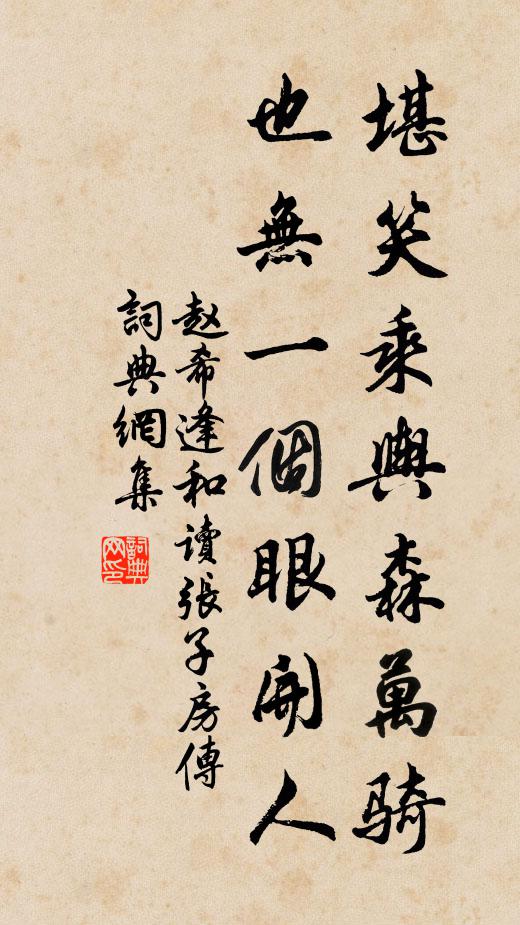 堪笑乘輿森萬骑
也無一個眼開人
赵希逢和讀張子房傳
詞典網集
詞典網印